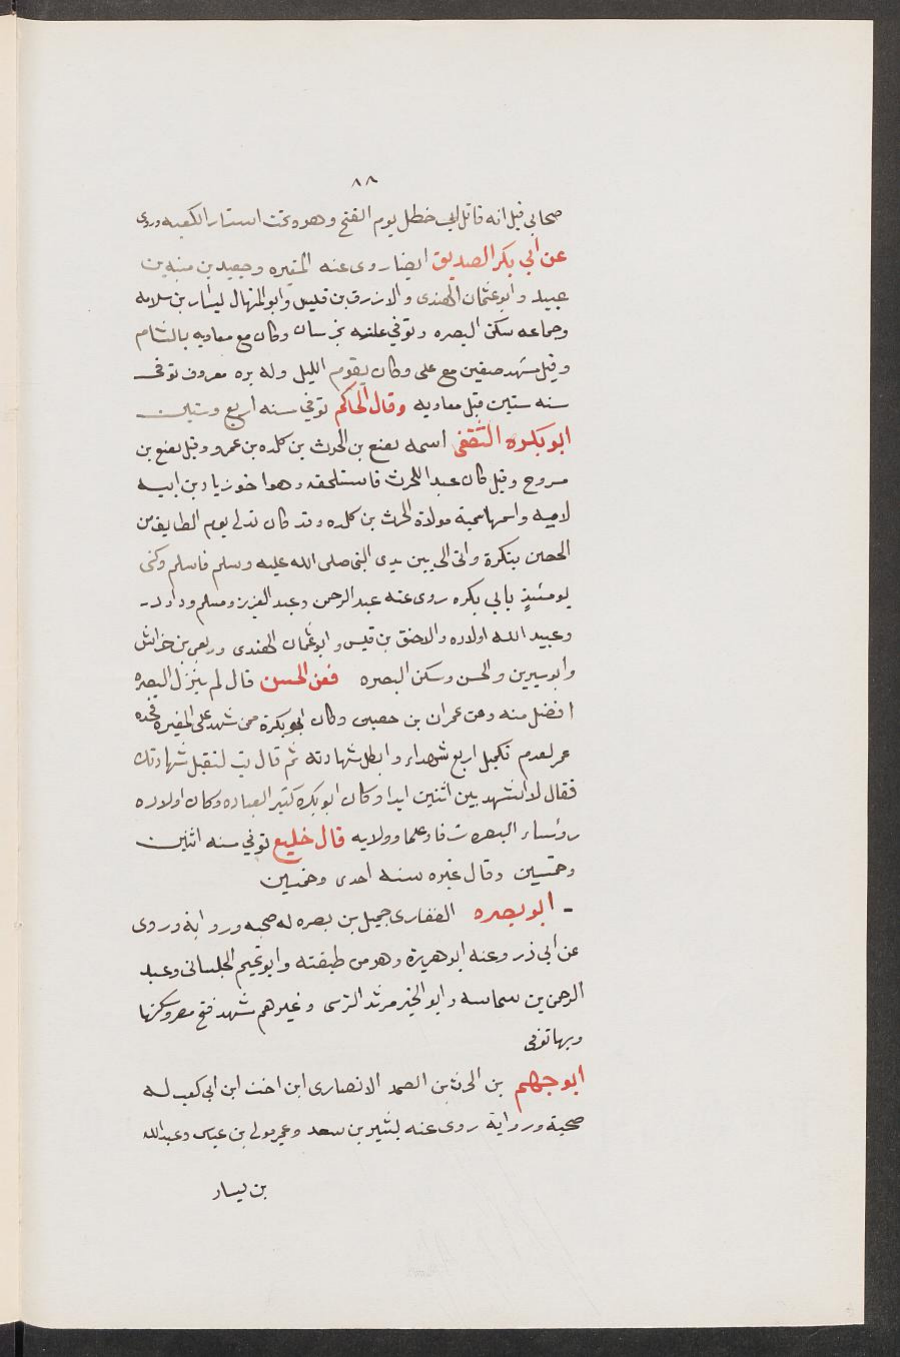 ٨٨
صحابي قيل انه قاتل ابن خطل يوم الفتح وهو تحت استار الكعبه وروى
عن أبي بكر الصديق ايضا روى عنه المغيره وحبيبه بن منبه بن
عبيد وابو عثمان الهندى والازرق بن قيس وابو المنهال ليسار بن سلامه
وجماعه سكن البصره وتوفي بخرسان وكان مع معاويه بالشام
وقيل شهد صفين مع على وكان يقوم الليل وله بره معروف توفى
سنه ستين قبل معاويه وقال الحاكم توفي سنه اربع وستين
ابو بكره الثقفى اسمه نفيع بن الحرث بن كلده بن عمرو وقيل نفيع بن
مروح وقيل كان عبد اللحرث فاستلحقه وهو اخو زياد بن ابيه
لاميه واسمها سمية مولاة الحرث بن كلده وقد كان تدلى يوم الطايف من
الحصن ببكرة واتى الى بين يدى النبى صلى الله عليه وسلم فاسلم وكنى
يومئذٍ بابي بكره روى عنه عبد الرحمن وعبد العزيز ومسلم وداود
وعبيد الله اولاده والاحنق بن قيس وابو عثمان الهندى وربعى بن خراش
وابو سيرين والحسن وسكن البصره فعن الحسن قال لم ينزل البصره
افضل منه ومن عمران بن حصين وكان ابو بكرة ممن شهد على المغيره فحده
عمر لعدم تكميل اربع شهداء وابطل شهادته ثم قال تب لنقبل شهادتك
فقال لا اشهد بين اثنين ابدا وكان ابو بكره كثير العباده وكان اولاده
روساء البصرة وعلما وولايه قال خليع توفي سنه اثنين
وخمسين وقال غيره سنه احدى وخمسين
ابو بصره الغفارى جميل بن بصره له صحبه ورواية وروى
عن ابي ذر وعنه ابو هريرة وهو من طبقته وابو تميم الجلسانى وعبد
الرحمن بن سماسه وابو الخير مرثد النرسى وغيرهم شهد فتح مصر وسكنها
وبها توفى
ابو جهم بن الحرث بن الصمد الانصارى ابن اخت ابن ابي كعب له
صحبة ورواية روى عنه بشير بن سعد وعمير مولى بن عباس وعبد الله
بن يسار